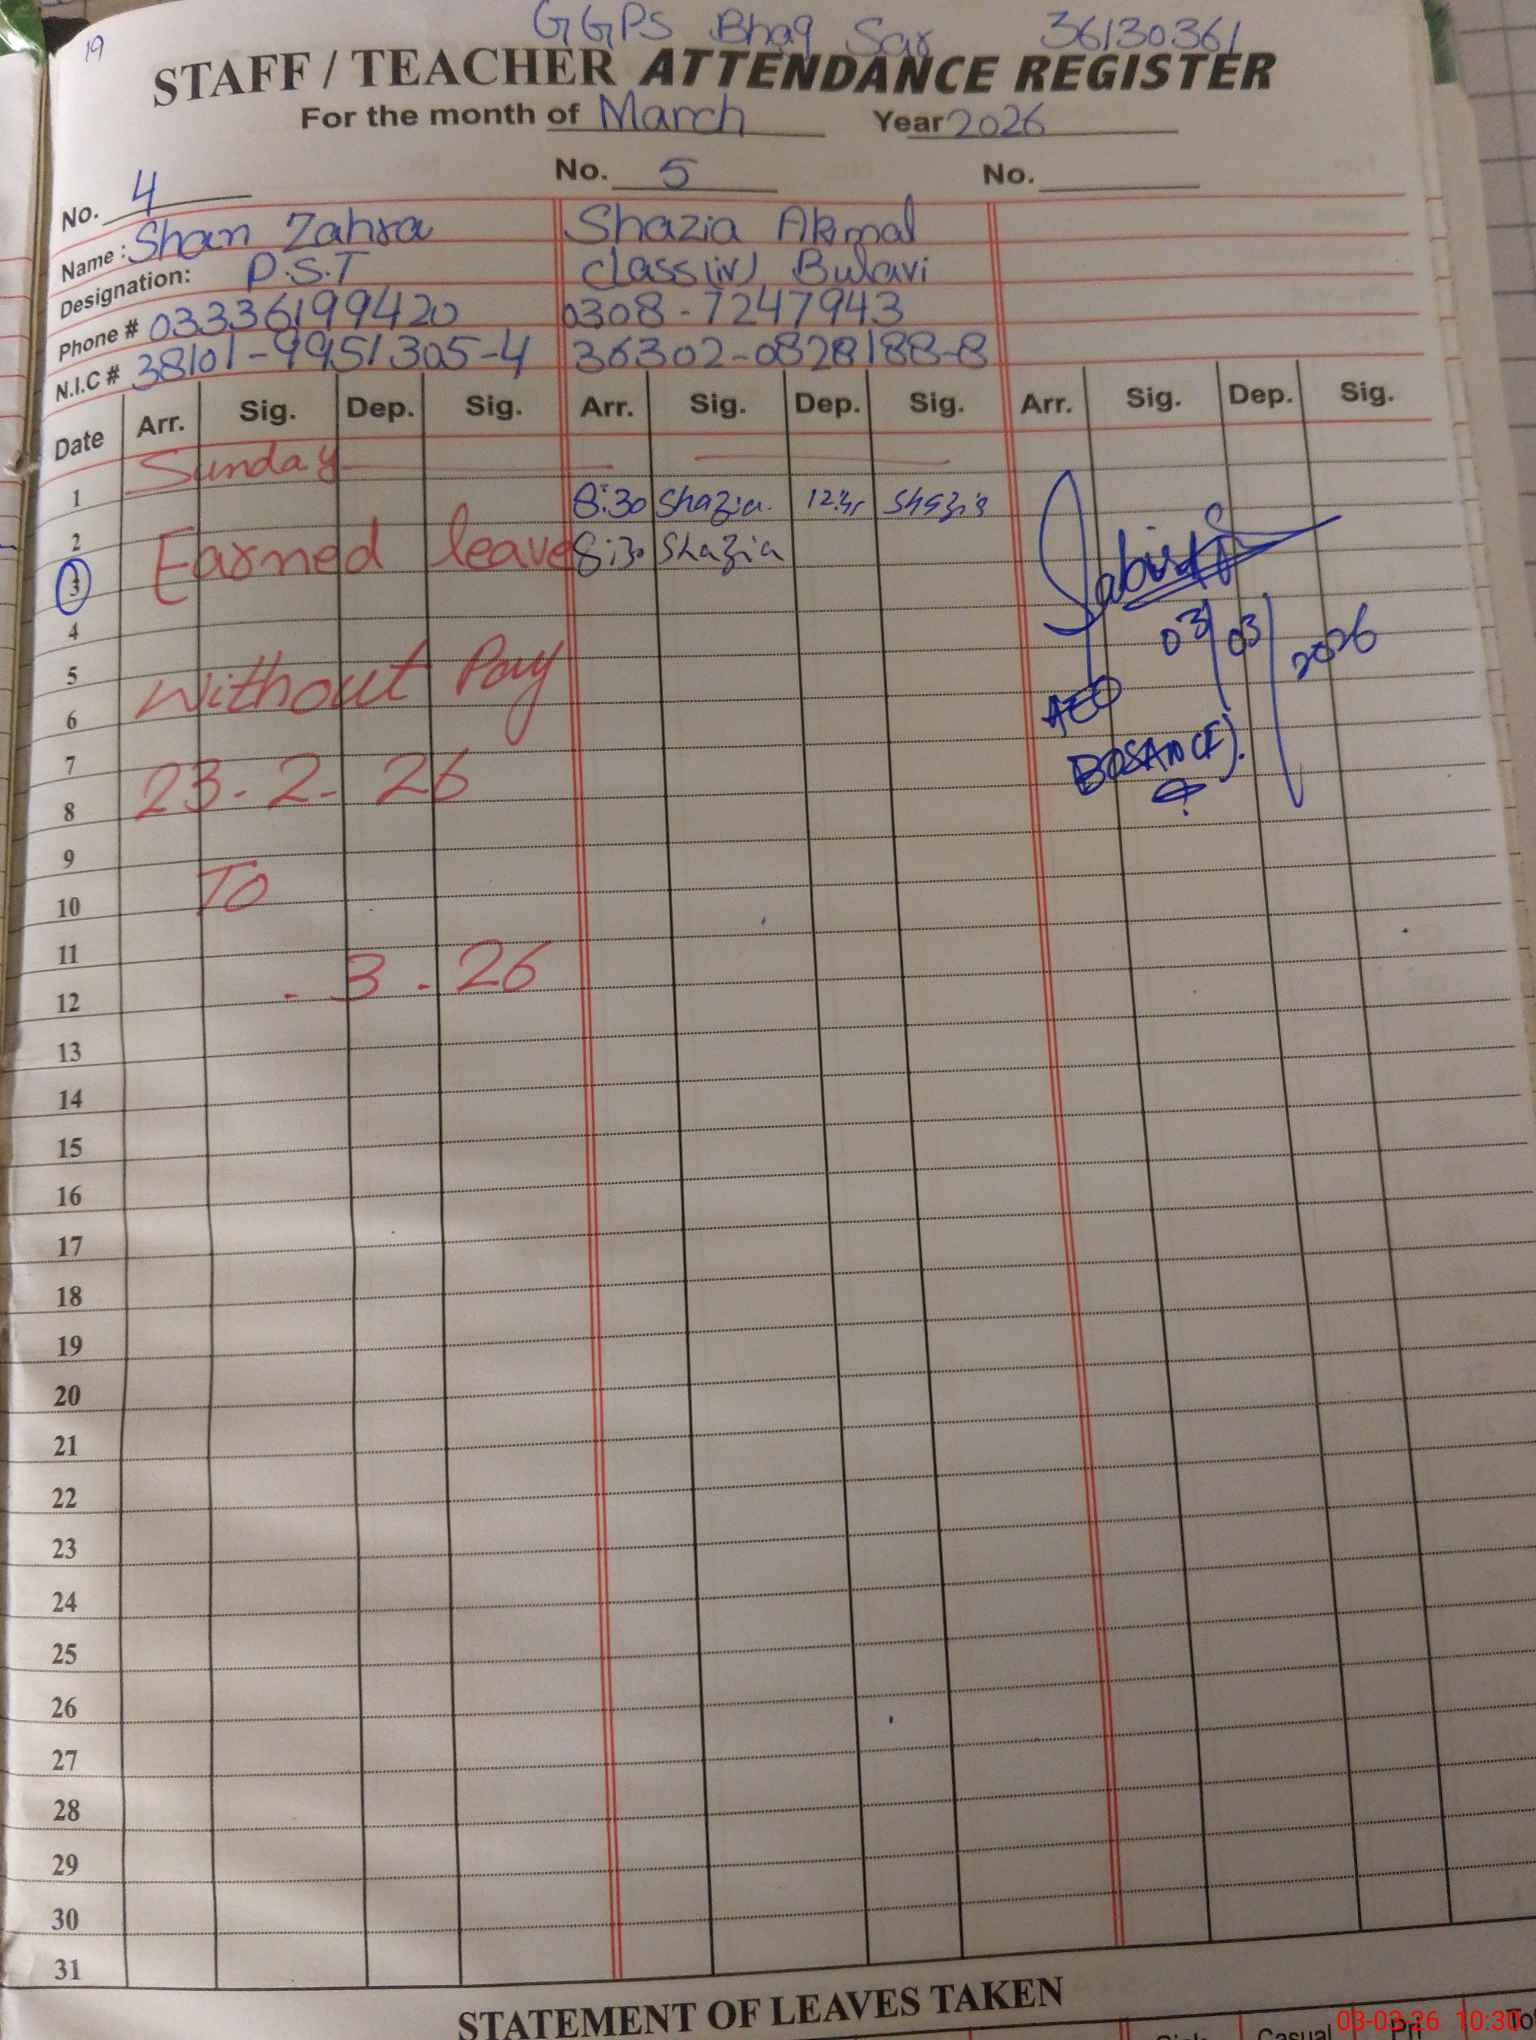 19
GGPS Bhag Sar 36130361
STAFF / TEACHER ATTENDANCE REGISTER
For the month of March Year 2026
No. 4 No. 5 No.
Name: Shan Zahra Shazia Akmal
Designation: P.S.T class(iv) Bulavi
Phone # 03336199420 0308-7247943
N.I.C # 38101-9951305-4 36302-0828188-8
Date Arr. Sig. Dep. Sig. Arr. Sig. Dep. Sig. Arr. Sig. Dep. Sig.
1 Sunday
2 8:30 Shazia. Shazia
3 Earned leave 8:30 Shazia
4
5
6 Without Pay
7
8 23.2.26
9
10 To
11
12 . 3 . 26
13
14
15
16
17
18
19
20
21
22
23
24
25
26
27
28
29
30
31
03/03/2026
AEO
BOSAN(F).
STATEMENT OF LEAVES TAKEN
Casual
03-03-26 10:30